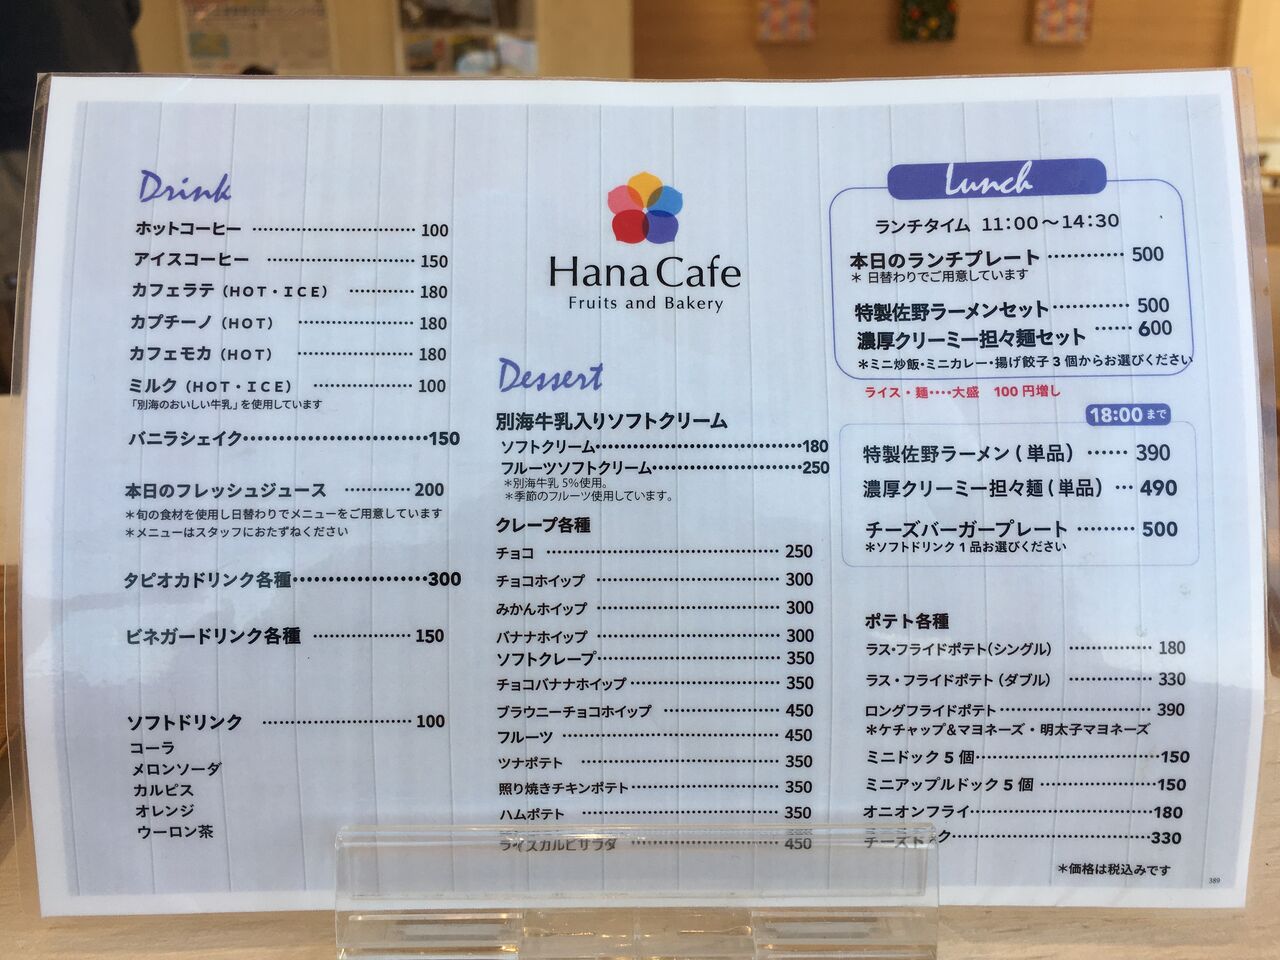 Drink
ホットコーヒー ………………… 100
アイスコーヒー ………………… 150
カフェラテ（HOT・ICE） ………… 180
カプチーノ（HOT） ……………… 180
カフェモカ（HOT） ……………… 180
ミルク（HOT・ICE） …………… 100
「別海のおいしい牛乳」を使用しています
バニラシェイク………………………150
本日のフレッシュジュース ………… 200
＊旬の食材を使用し日替わりでメニューをご用意しています
＊メニューはスタッフにおたずねください
タピオカドリンク各種…………………300
ビネガードリンク各種 …………… 150
ソフトドリンク ………………… 100
コーラ
メロンソーダ
カルピス
オレンジ
ウーロン茶
Hana Cafe
Fruits and Bakery
Dessert
別海牛乳入りソフトクリーム
ソフトクリーム…………………………180
フルーツソフトクリーム…………………250
＊別海牛乳 5％使用。
＊季節のフルーツ使用しています。
クレープ各種
チョコ ………………………… 250
チョコホイップ …………………… 300
みかんホイップ …………………… 300
バナナホイップ …………………… 300
ソフトクレープ…………………… 350
チョコバナナホイップ……………… 350
ブラウニーチョコホイップ ………… 450
フルーツ ………………………… 450
ツナポテト ……………………… 350
照り焼きチキンポテト……………… 350
ハムポテト ……………………… 350
ライスカルビサラダ ……………… 450
Lunch
ランチタイム 11:00～14:30
本日のランチプレート ………… 500
＊ 日替わりでご用意しています
特製佐野ラーメンセット………… 500
濃厚クリーミー担々麺セット …… 600
＊ミニ炒飯・ミニカレー・揚げ餃子 3 個からお選びください
ライス・麺‥‥大盛 100 円増し
18:00 まで
特製佐野ラーメン ( 単品） …… 390
濃厚クリーミー担々麺 ( 単品） … 490
チーズバーガープレート ……… 500
＊ソフトドリンク 1 品お選びください
ポテト各種
ラス・フライドポテト（シングル） ………… 180
ラス・フライドポテト（ダブル） ………… 330
ロングフライドポテト………………… 390
＊ケチャップ＆マヨネーズ・明太子マヨネーズ
ミニドック 5 個……………………150
ミニアップルドック 5 個 …………… 150
オニオンフライ……………………180
チーズドック……………………330
＊価格は税込みです
389